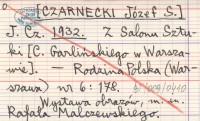 [CZARNECKI Józef S.]
J. Cz. 1932. Z Salonu Sztu-
ki [C. Garlińskiego w Warsza-
wie]. Rodzina Polska (War-
szawa) nr 6: 178.
Wystawa obrazów, m. in.
Rafała Malczewskiego.